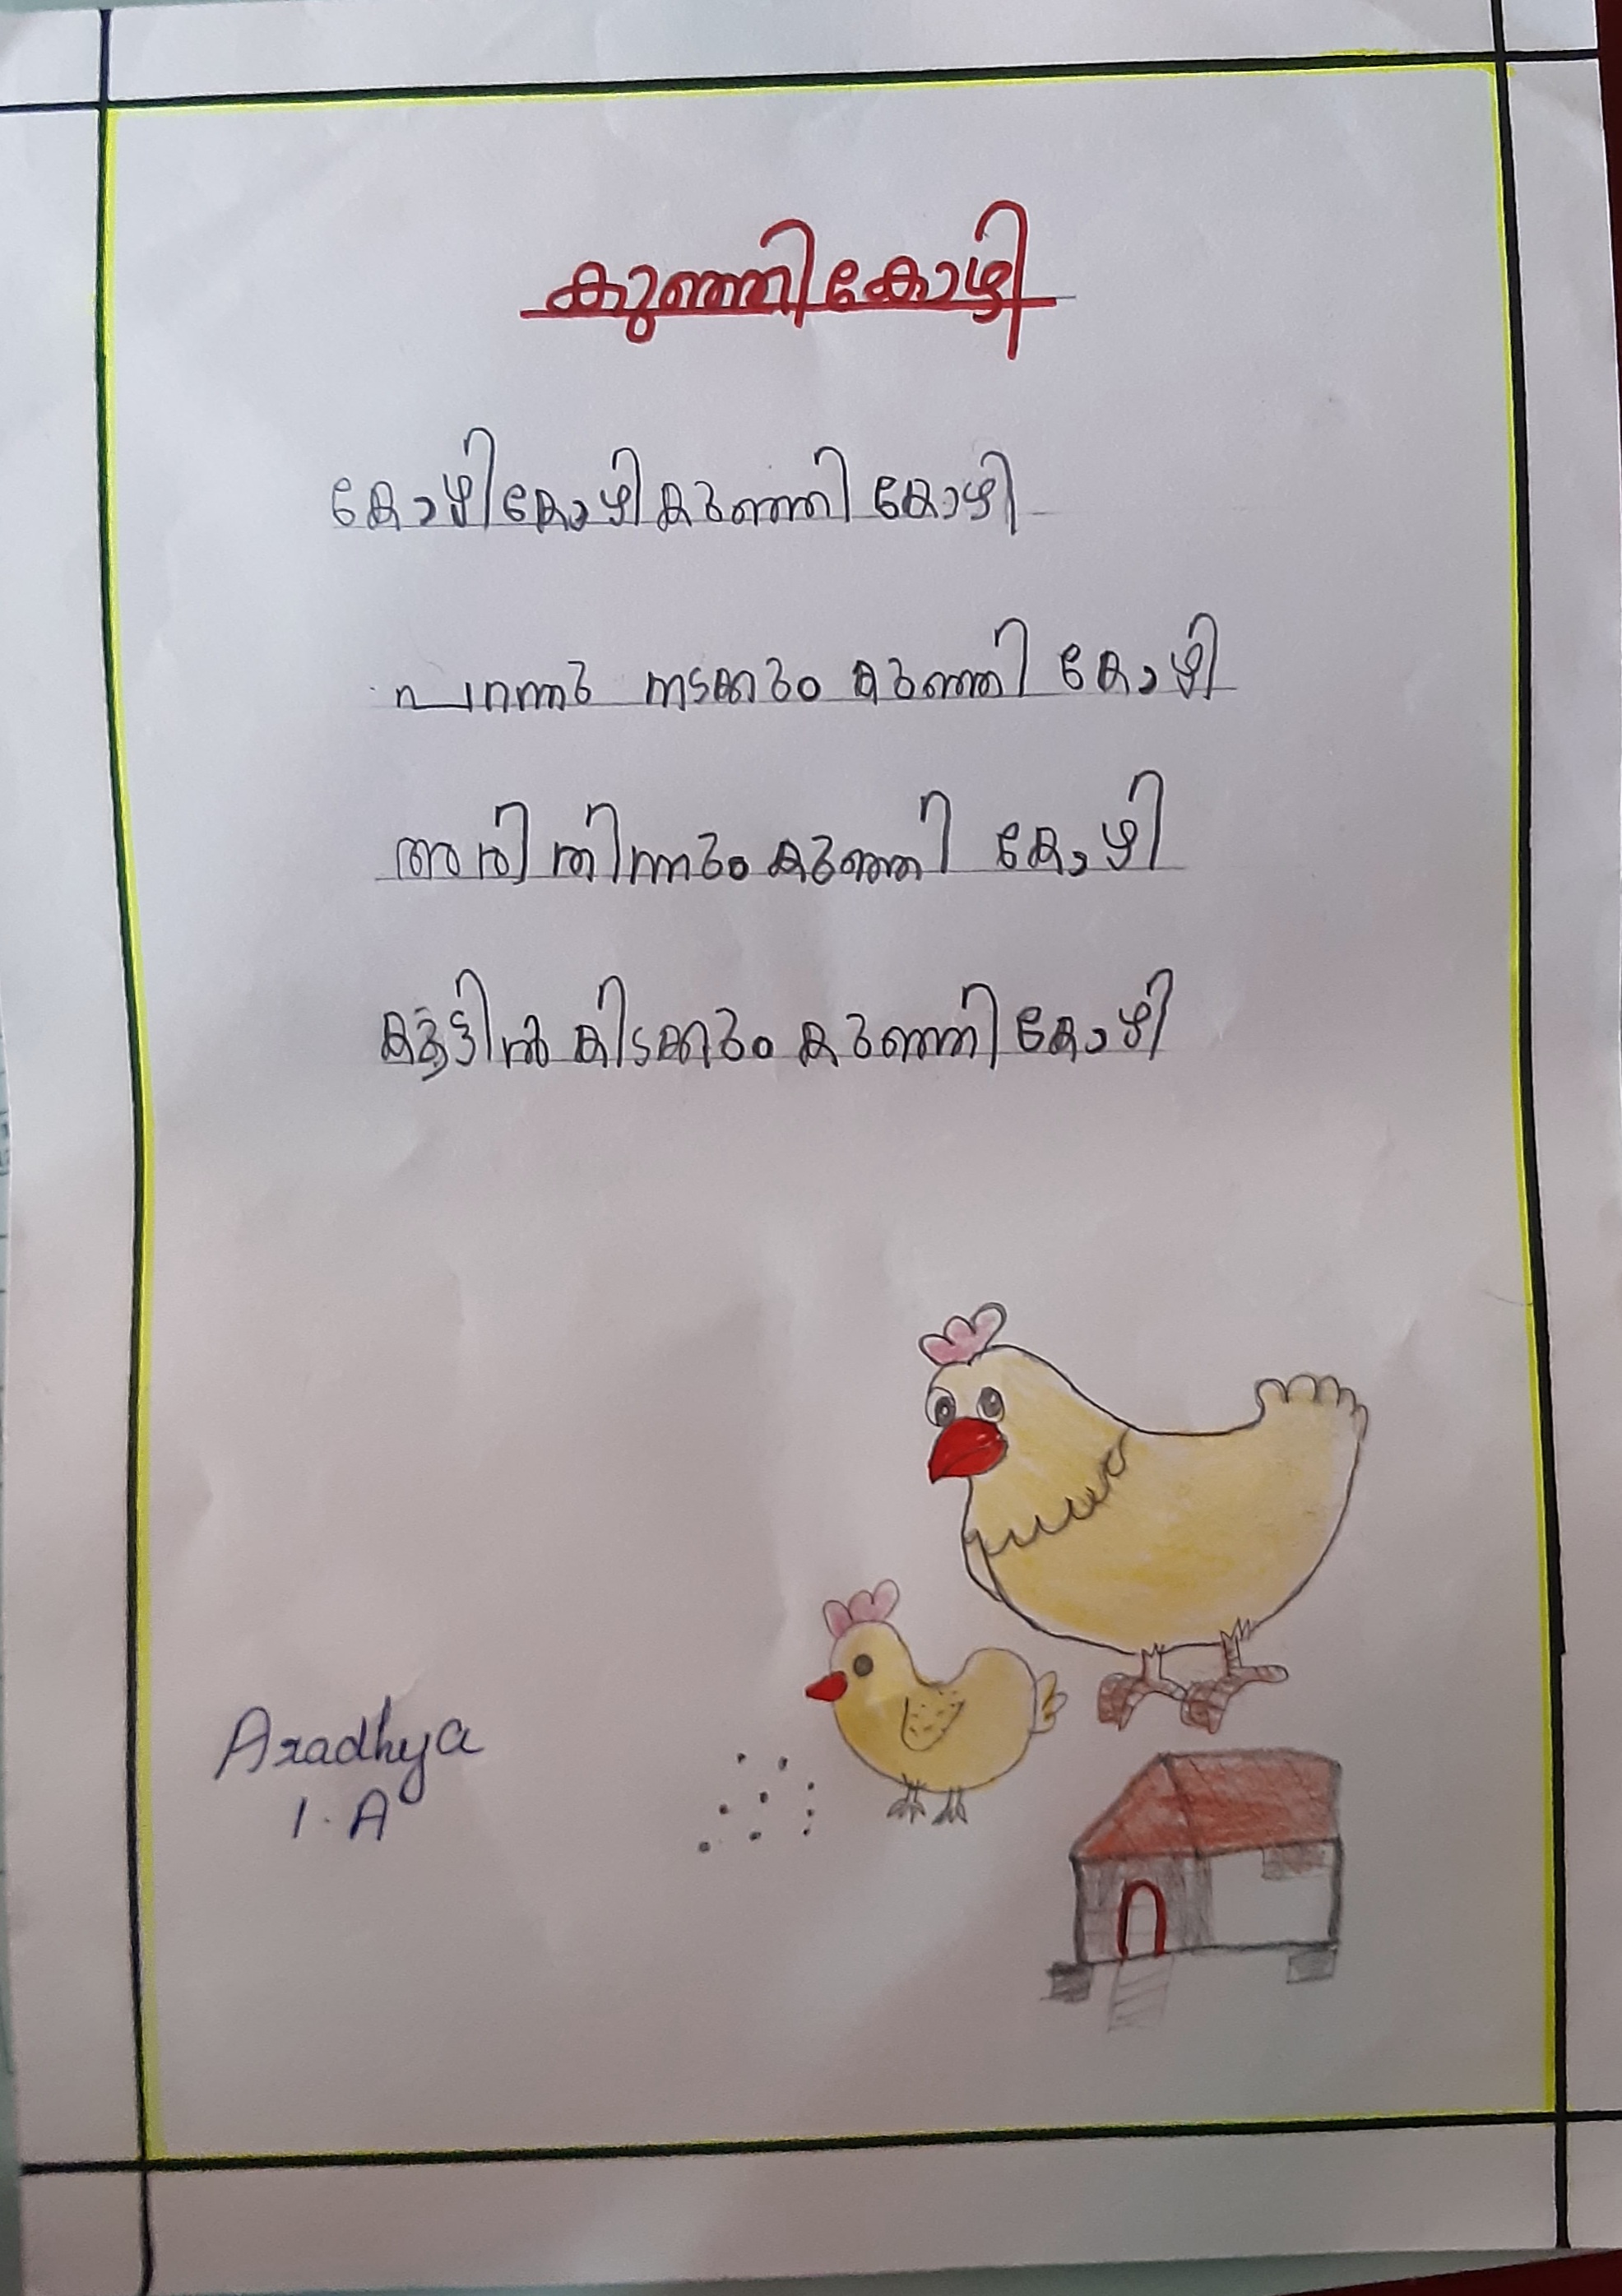 കുഞ്ഞി കോഴി
കോഴി കോഴി കുഞ്ഞി കോഴി
പറന്നു നടക്കും കുഞ്ഞി കോഴി
അരി തിന്നും കുഞ്ഞി കോഴി
കൂട്ടിൽ കിടക്കും കുഞ്ഞി കോഴി
Aradhya
1. A